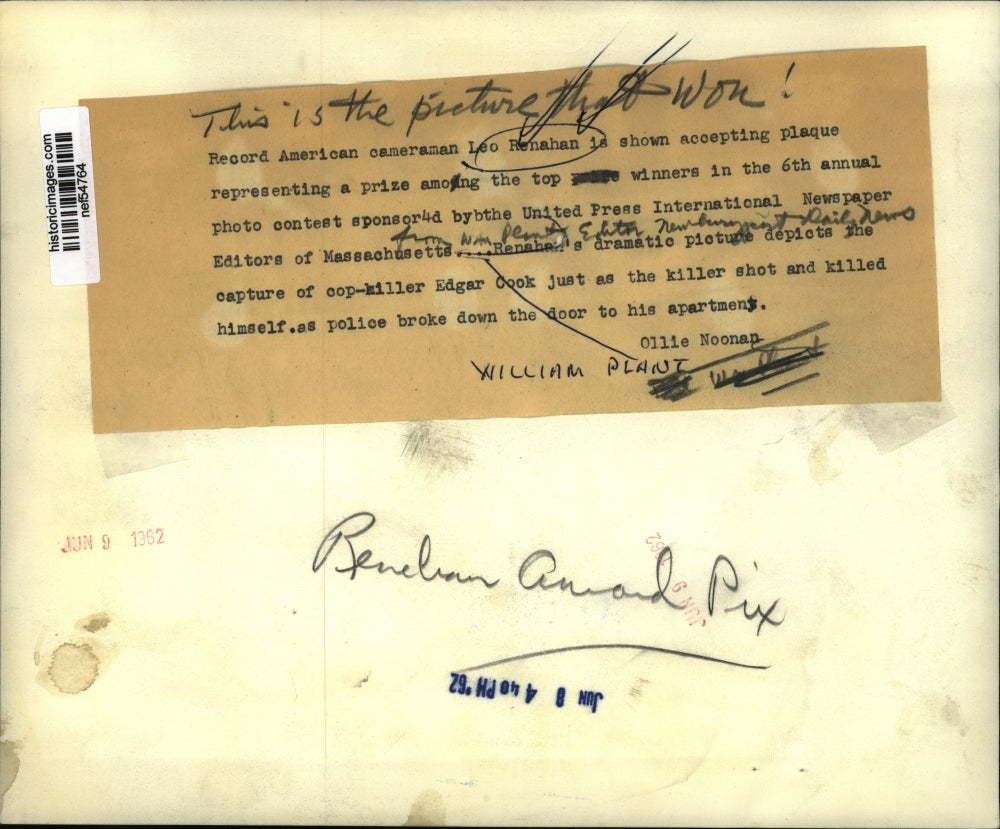 historicimages.com
nef54764
This is the picture that Won!
Record American cameraman Leo Renahan is shown accepting plaque
representing a prize among the top winners in the 6th annual
photo contest sponsor4d bybthe United Press International Newspaper
from Wm Plant, Editor Newburyport Daily News
Editors of Massachusetts....Renahan's dramatic picture depicts the
capture of cop-killer Edgar Cook just as the killer shot and killed
himself.as police broke down the door to his apartment.
Ollie Noonan
WILLIAM PLANT
JUN 9 1962
JUN 9 1962
Renehan Award Pix
JUN 8 4 40 PM '62